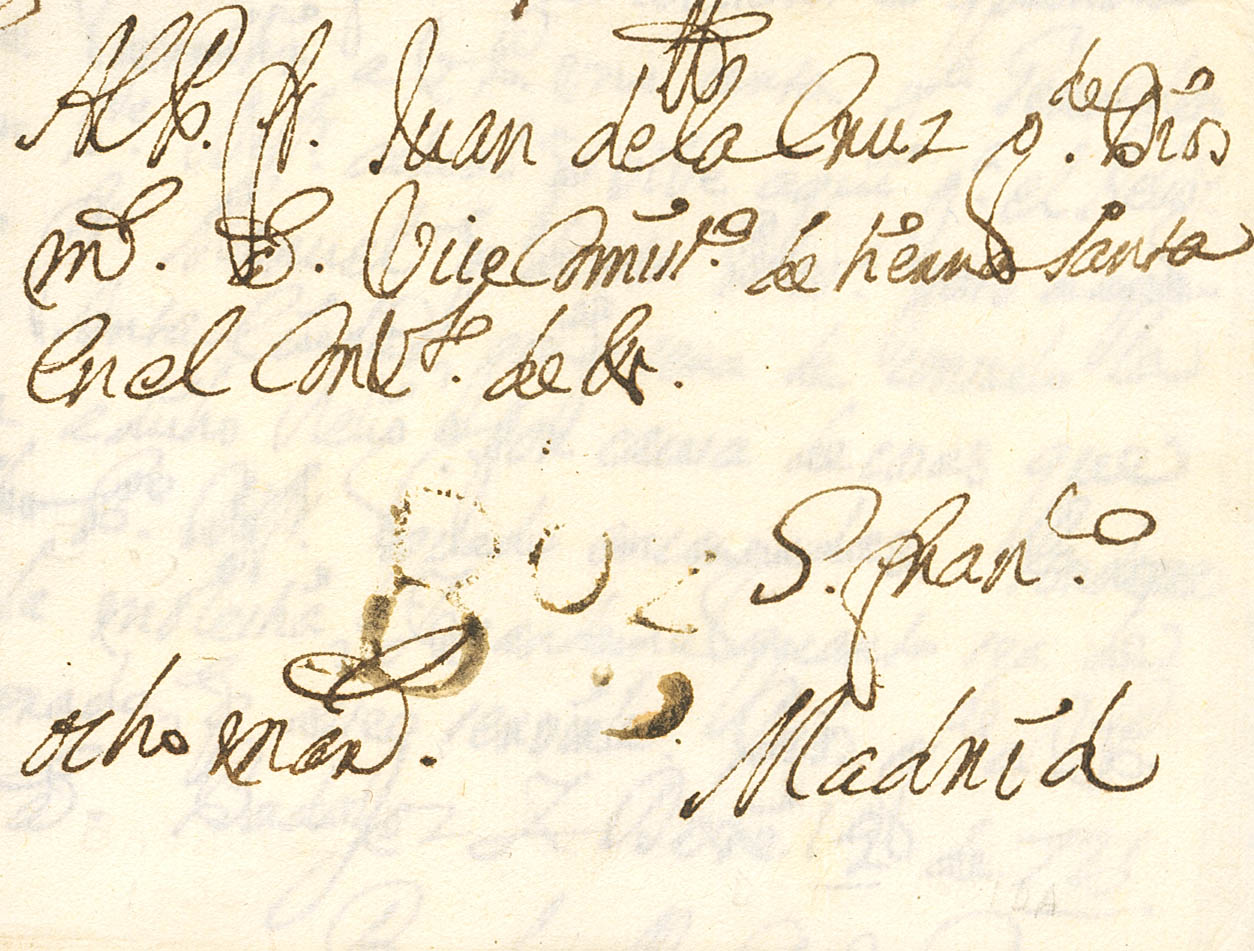 Al P. fr. Juan de la Cruz q. Dios
m. Vice Comis.º de tierra santa
en el Conv.to de
S. Fran.co
ocho mar.
Madrid